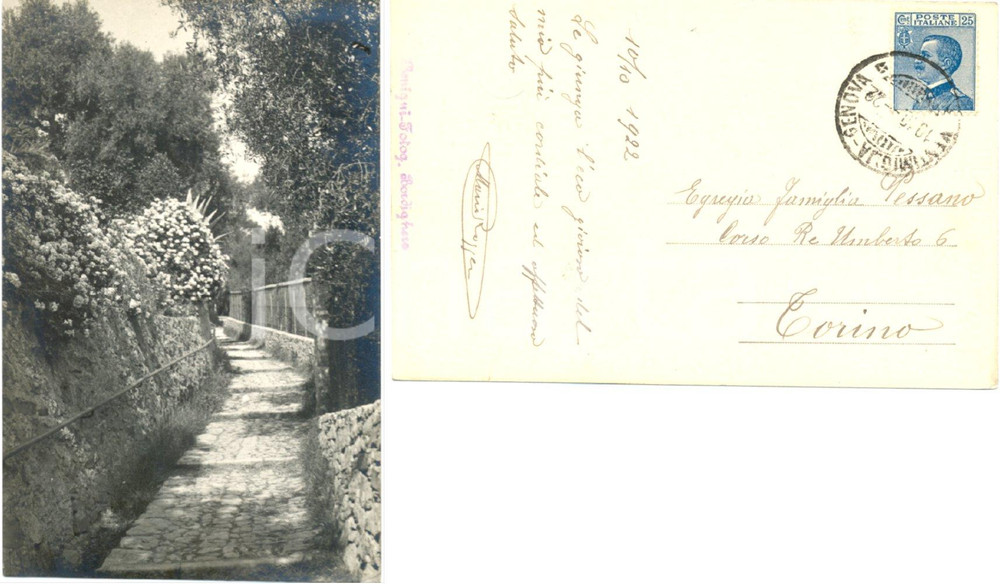 10/10 1922
Le giunga l'eco gioiosa del
mio più cordiale ed affettuoso
saluto
Fotog. Bordighera
Cent. POSTE 25
ITALIANE
VENTIMIGLIA-GENOVA
Egregia Famiglia Vessano
Corso Re Umberto 6
Torino